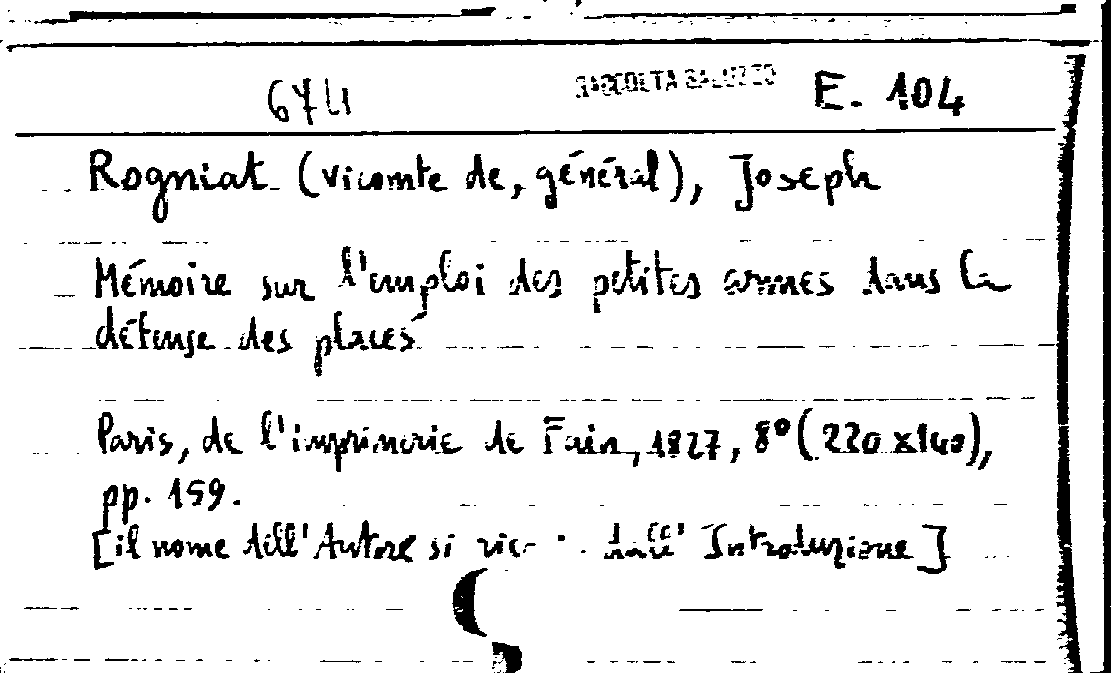 6741 RACCOLTA SALUZZO E. 104
Rogniat (vicomte de, général), Joseph
Mémoire sur l'emploi des petites armes dans la
défense des places
Paris, de l'imprimerie de Fain, 1827, 8° (220 x 140),
pp. 159.
[il nome dell'Autore si dall' Introduzione]